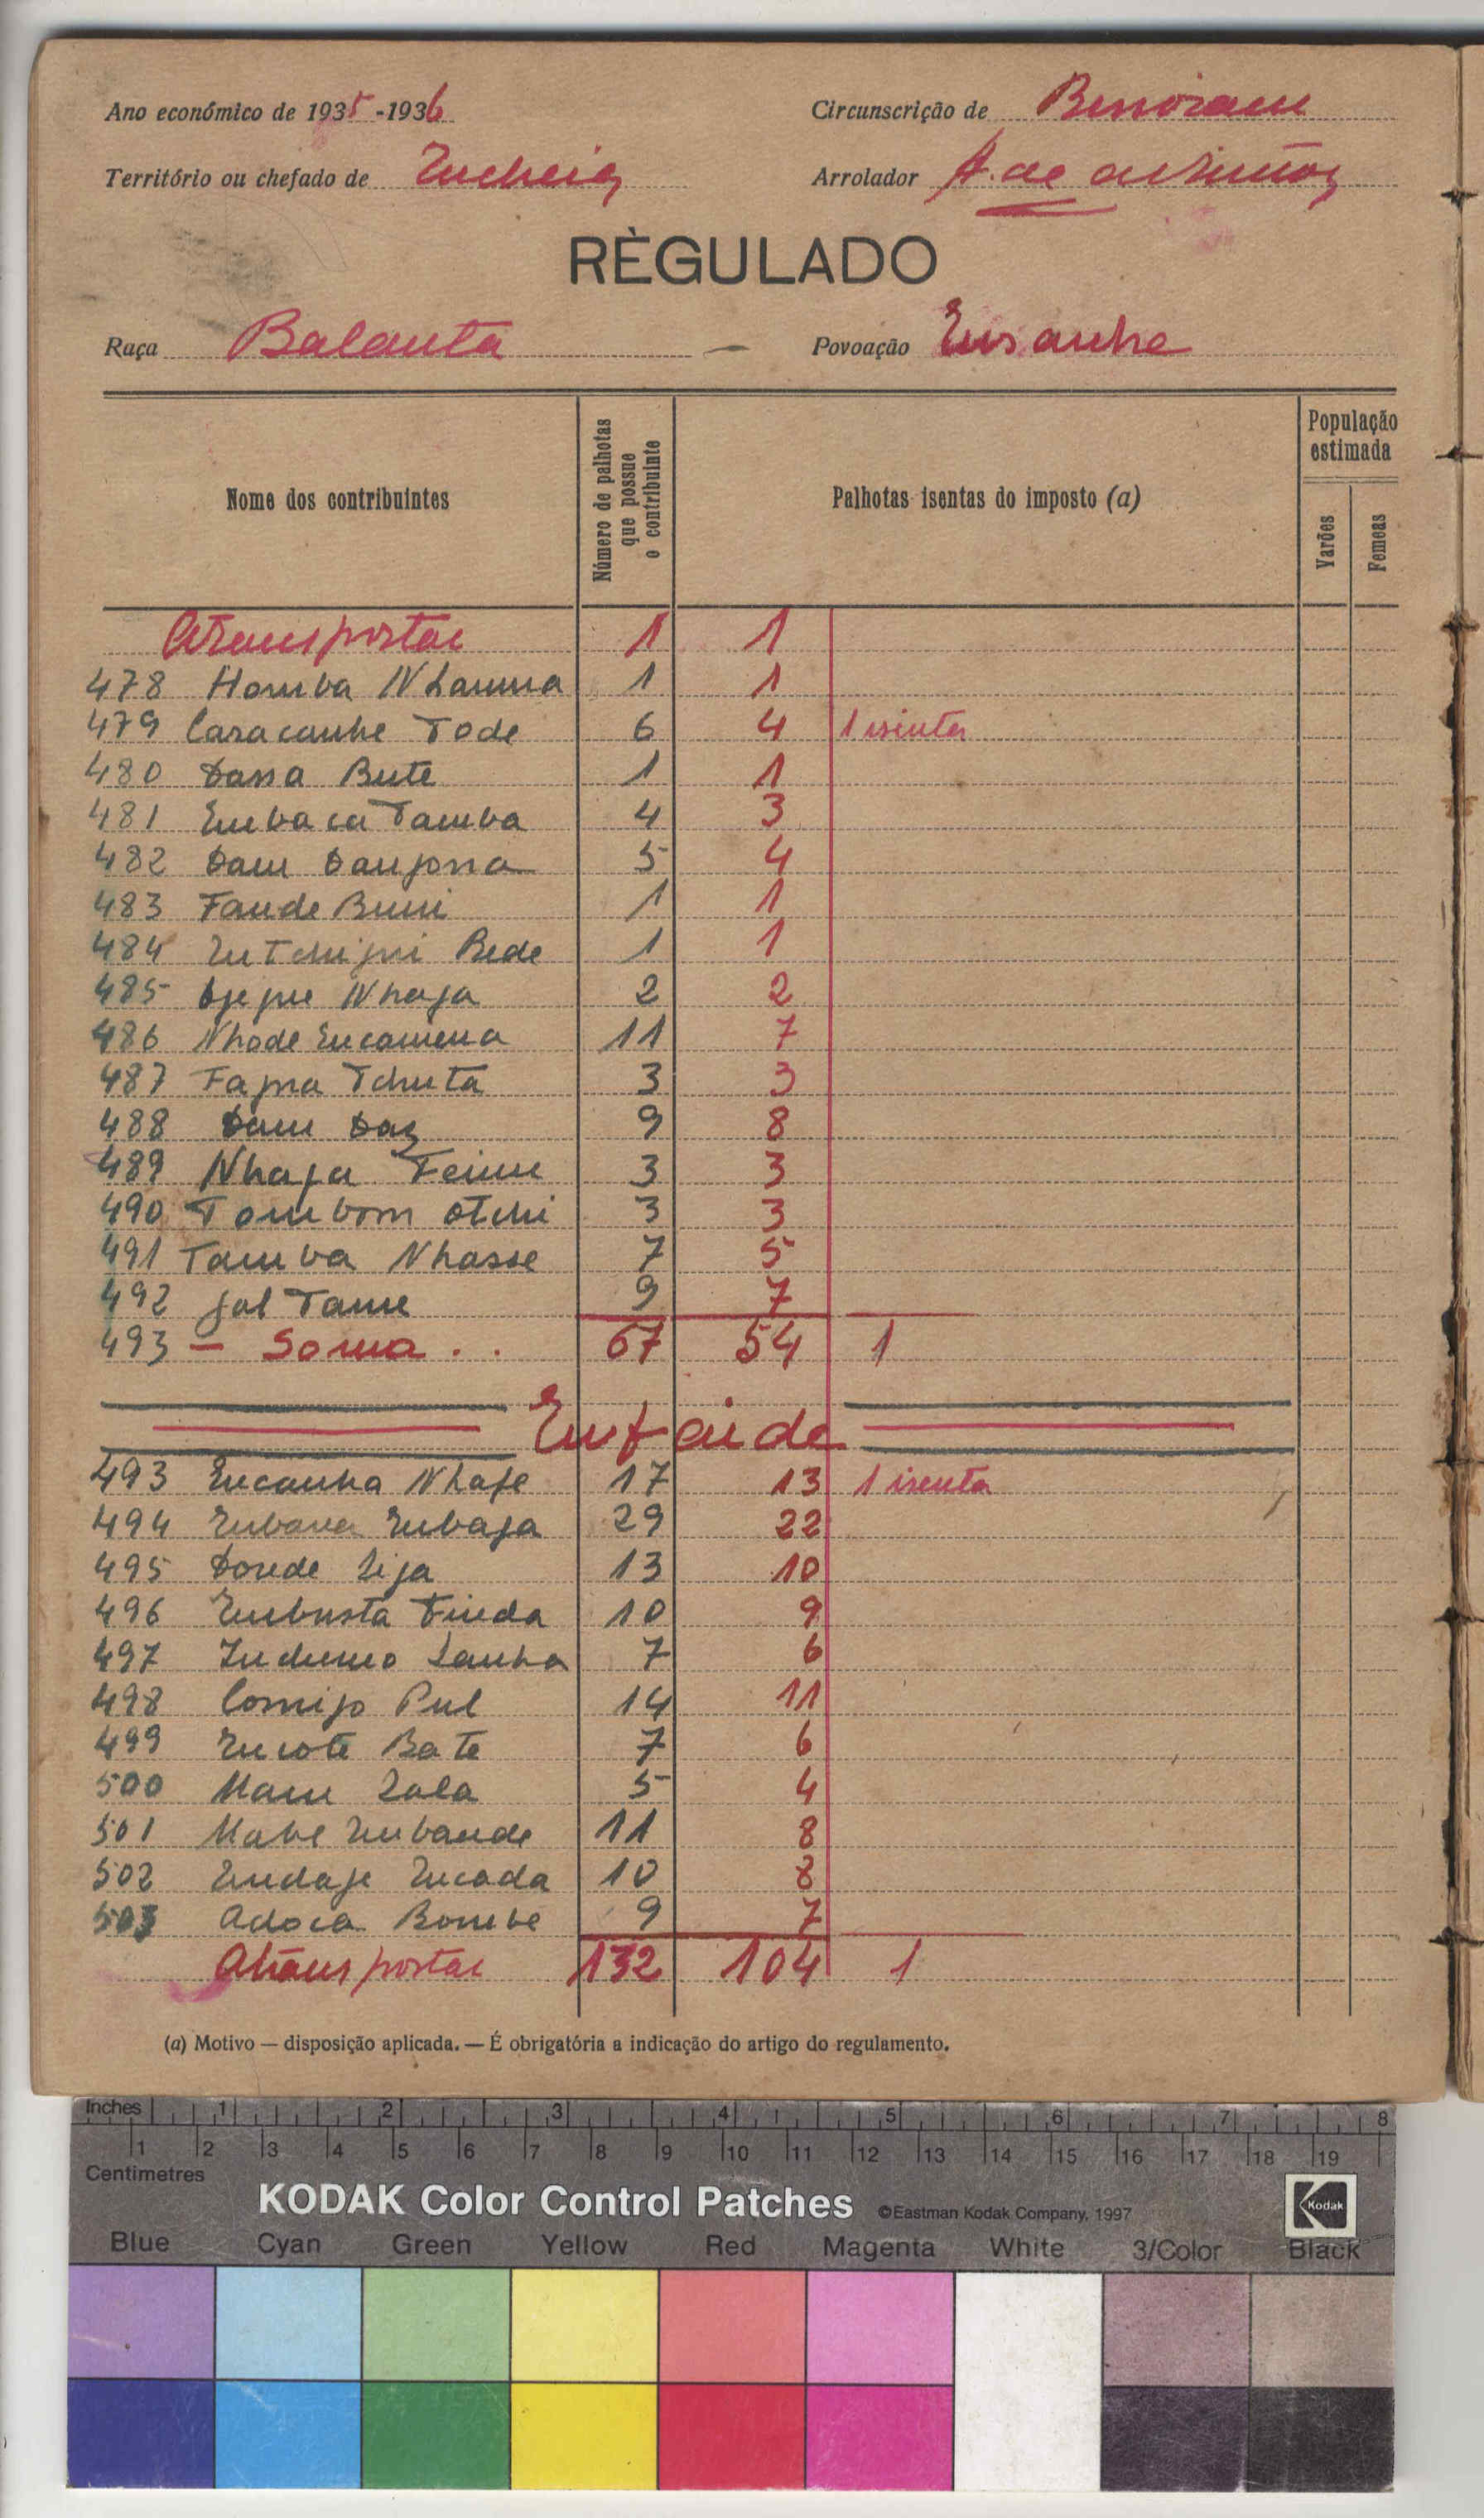 Ano económico de 1935-1936
Circunscrição de Bissoram
Território ou chefado de Encheia
Arrolador A. de
RÈGULADO
Raça Balanta —
Povoação Ensanhe
Nome dos contribuintes
Número de palhotas que possue o contribuinte
Palhotas isentas do imposto (a)
População estimada
Varões
Femeas
Atransportar 1 1
478 Homba Nhamna 1 1
479 Caracanhe Tode 6 4 1 isenta
480 Dassa Bute 1 1
481 Embaca Tamba 4 3
482 Dam Danfona 5 4
483 Fande Buni 1 1
484 Bede 1 1
485 Nhaga 2 2
486 Nhode Encamena 11 7
487 Fapna Tchuta 3 3
488 Dam Daz 9 8
489 Nhaga Feime 3 3
490 Tombom Otchi 3 3
491 Tamba Nhasse 7 5
492 Gol Tame 9 7
493 — Soma . . 67 54 1
Enfaide
493 Encanha Nhafe 17 13 1 isenta
494 Enbana Enbaga 29 22
495 Donde Siga 13 10
496 Enbusta Finda 10 9
497 Sanha 7 6
498 Comigo Pul 14 11
499 Encote Bate 7 6
500 Mam Lala 5 4
501 Mabe Enbande 11 8
502 Endage Encada 10 8
503 Adoca Bombe 9 7
Atransportar 132 104 1
(a) Motivo — disposição aplicada. — É obrigatória a indicação do artigo do regulamento.
Inches 1 2 3 4 5 6 7 8
1 2 3 4 5 6 7 8 9 10 11 12 13 14 15 16 17 18 19
Centimetres
KODAK Color Control Patches ©Eastman Kodak Company, 1997
Kodak
Blue Cyan Green Yellow Red Magenta White 3/Color Black